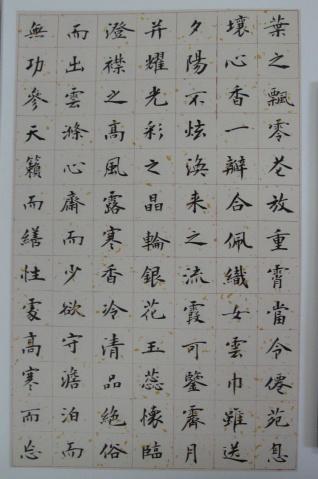 葉之飄零花放重霄當令僊苑息
壤心香一瓣合佩織女雲巾雖送
夕陽不炫渙来之流霞可鑒霽月
并耀光彩之晶輪銀花玉蕊懐臨
澄襟之高風露寒香冷清品絕俗
而出雲滌心齋而少欲守澹泊而
無功參天籟而繕性處高寒而忘